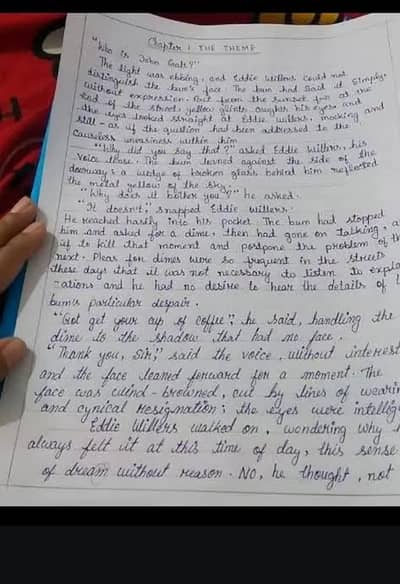 Chapter 1 THE THEME
"Who is John Galt?"
The light was ebbing, and Eddie Willers could not
distinguish the bum's face. The bum had said it simply,
without expression. But from the sunset far at the
end of the street, yellow glints caught his eyes, and
the eyes looked straight at Eddie Willers, mocking and
still - as if the question had been addressed to the
causeless uneasiness within him.
"Why did you say that?" asked Eddie Willers, his
voice tense. The bum leaned against the side of the
doorway; a wedge of broken glass behind him reflected
the metal yellow of the sky.
"Why does it bother you?" he asked.
"It doesn't," snapped Eddie Willers.
He reached hasily into his pocket. The bum had stopped
him and asked for a dime, then had gone on talking, a
if to kill that moment and postpone the problem of th
next. Pleas for dimes were so frequent in the streets
these days that it was not necessary to listen to expla
-ations and he had no desire to hear the details of
bum's particular despair.
"Got get your cup of coffee", he said, handling the
dime to the shadow that had no face.
"Thank you, Sir," said the voice, without interest
and the face leaned forward for a moment. The
face was wind-browned, cut by lines of wearin
and cynical resignation; the eyes were intellig
Eddie Willers walked on, wondering why
always felt it at this time of day, this sense
of dream without reason. NO, he thought, not